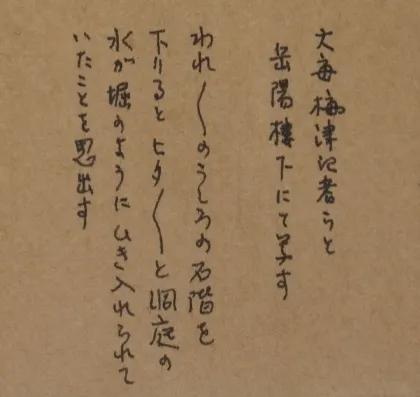 大毎梅津記者らと
岳陽樓下にて写す
われ〱のうしろの石階を
下りるとヒタ〱と洞庭の
水が堀のようにひき入れられて
いたことを思出す